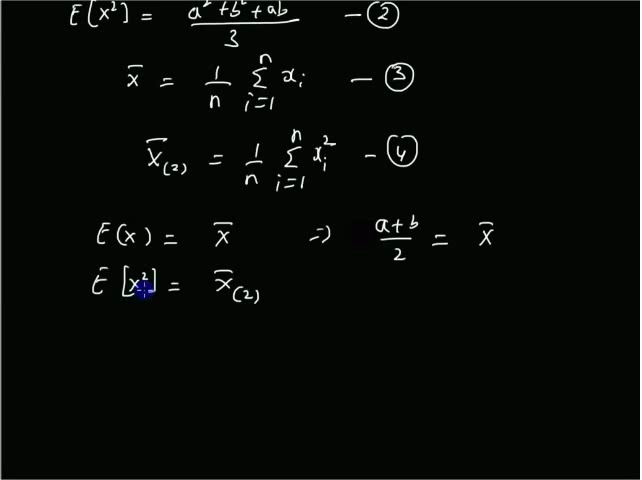 E[x²] = (a² + b² + ab)/3 — ②
x̄ = 1/n ∑_{i=1}^{n} x_i — ③
X̄_(2) = 1/n ∑_{i=1}^{n} x_i² — ④
E(x) = X̄ ⇒ (a+b)/2 = X̄
E[x²] = X̄_(2)